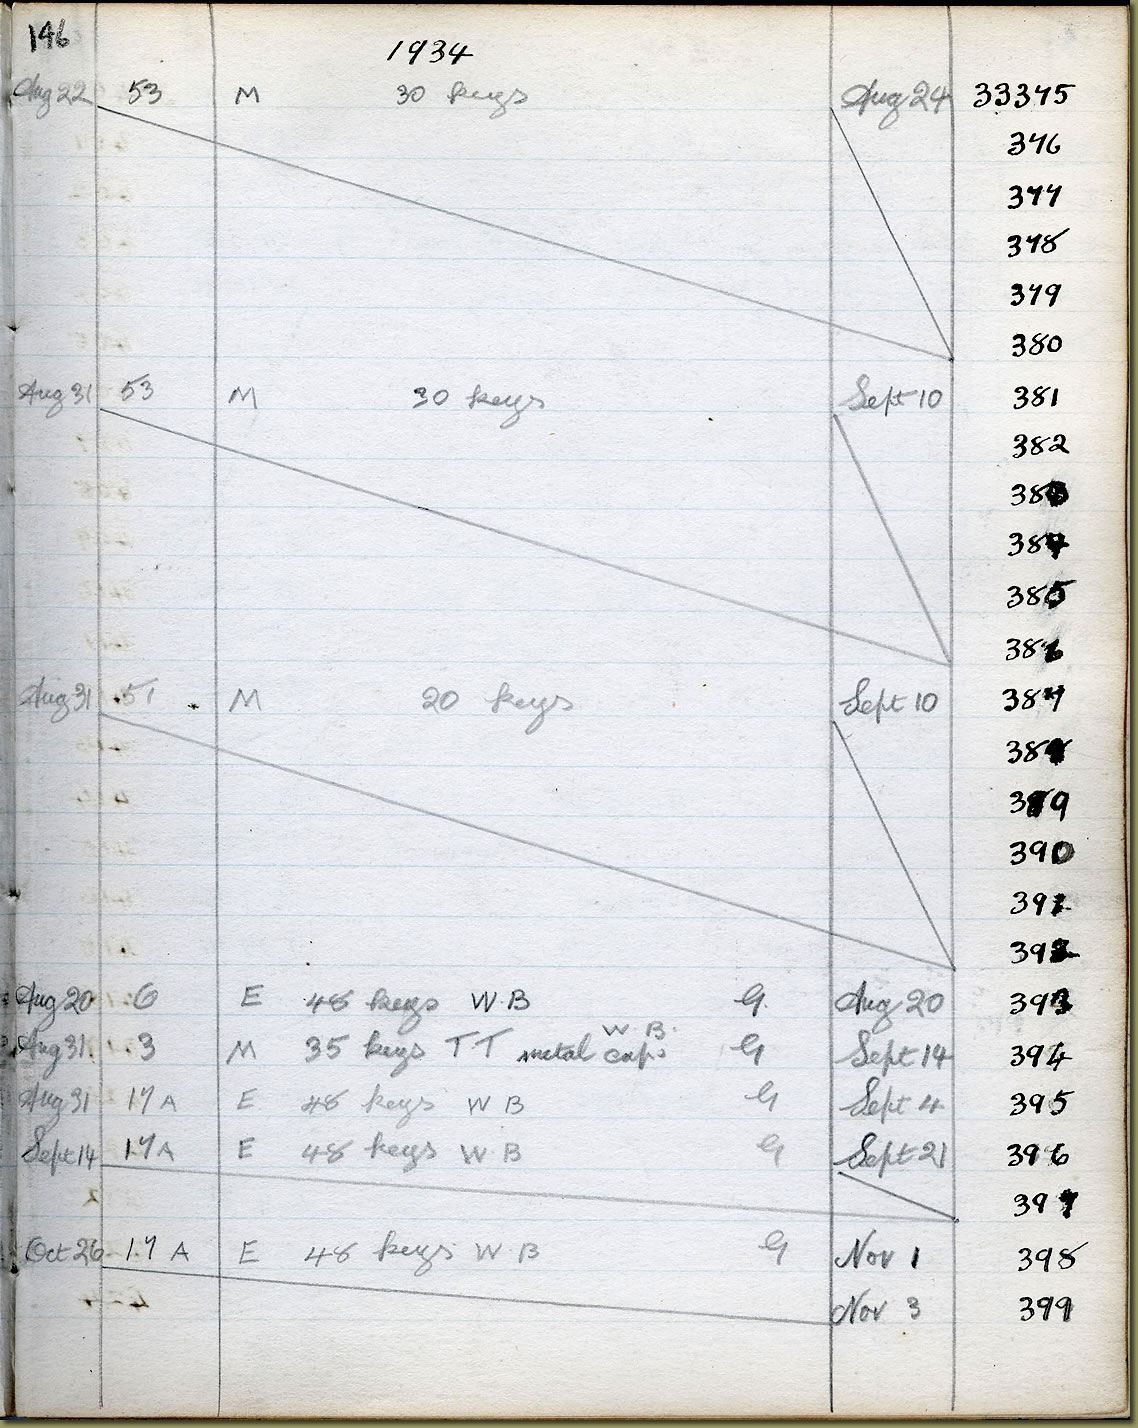 146
1934
Aug 22 53 M 30 keys Aug 24 33375
376
377
378
379
380
Aug 31 53 M 30 keys Sept 10 381
382
383
384
385
386
Aug 31 51 M 20 keys Sept 10 387
388
389
390
391
392
Aug 20 6 E 48 keys W B G Aug 20 393
Aug 31 3 M 35 keys T T metal caps W B. G Sept 14 394
Aug 31 17 A E 48 keys W B G Sept 4 395
Sept 14 17A E 48 keys W B G Sept 21 396
397
Oct 26 17 A E 48 keys W B G Nov 1 398
Nov 3 399